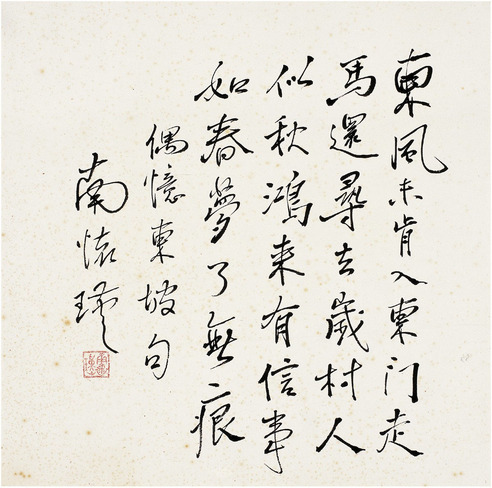 東風未肯入東门走
馬還尋去歲村人
似秋鴻来有信事
如春夢了無痕
偶憶東坡句
南懷瑾